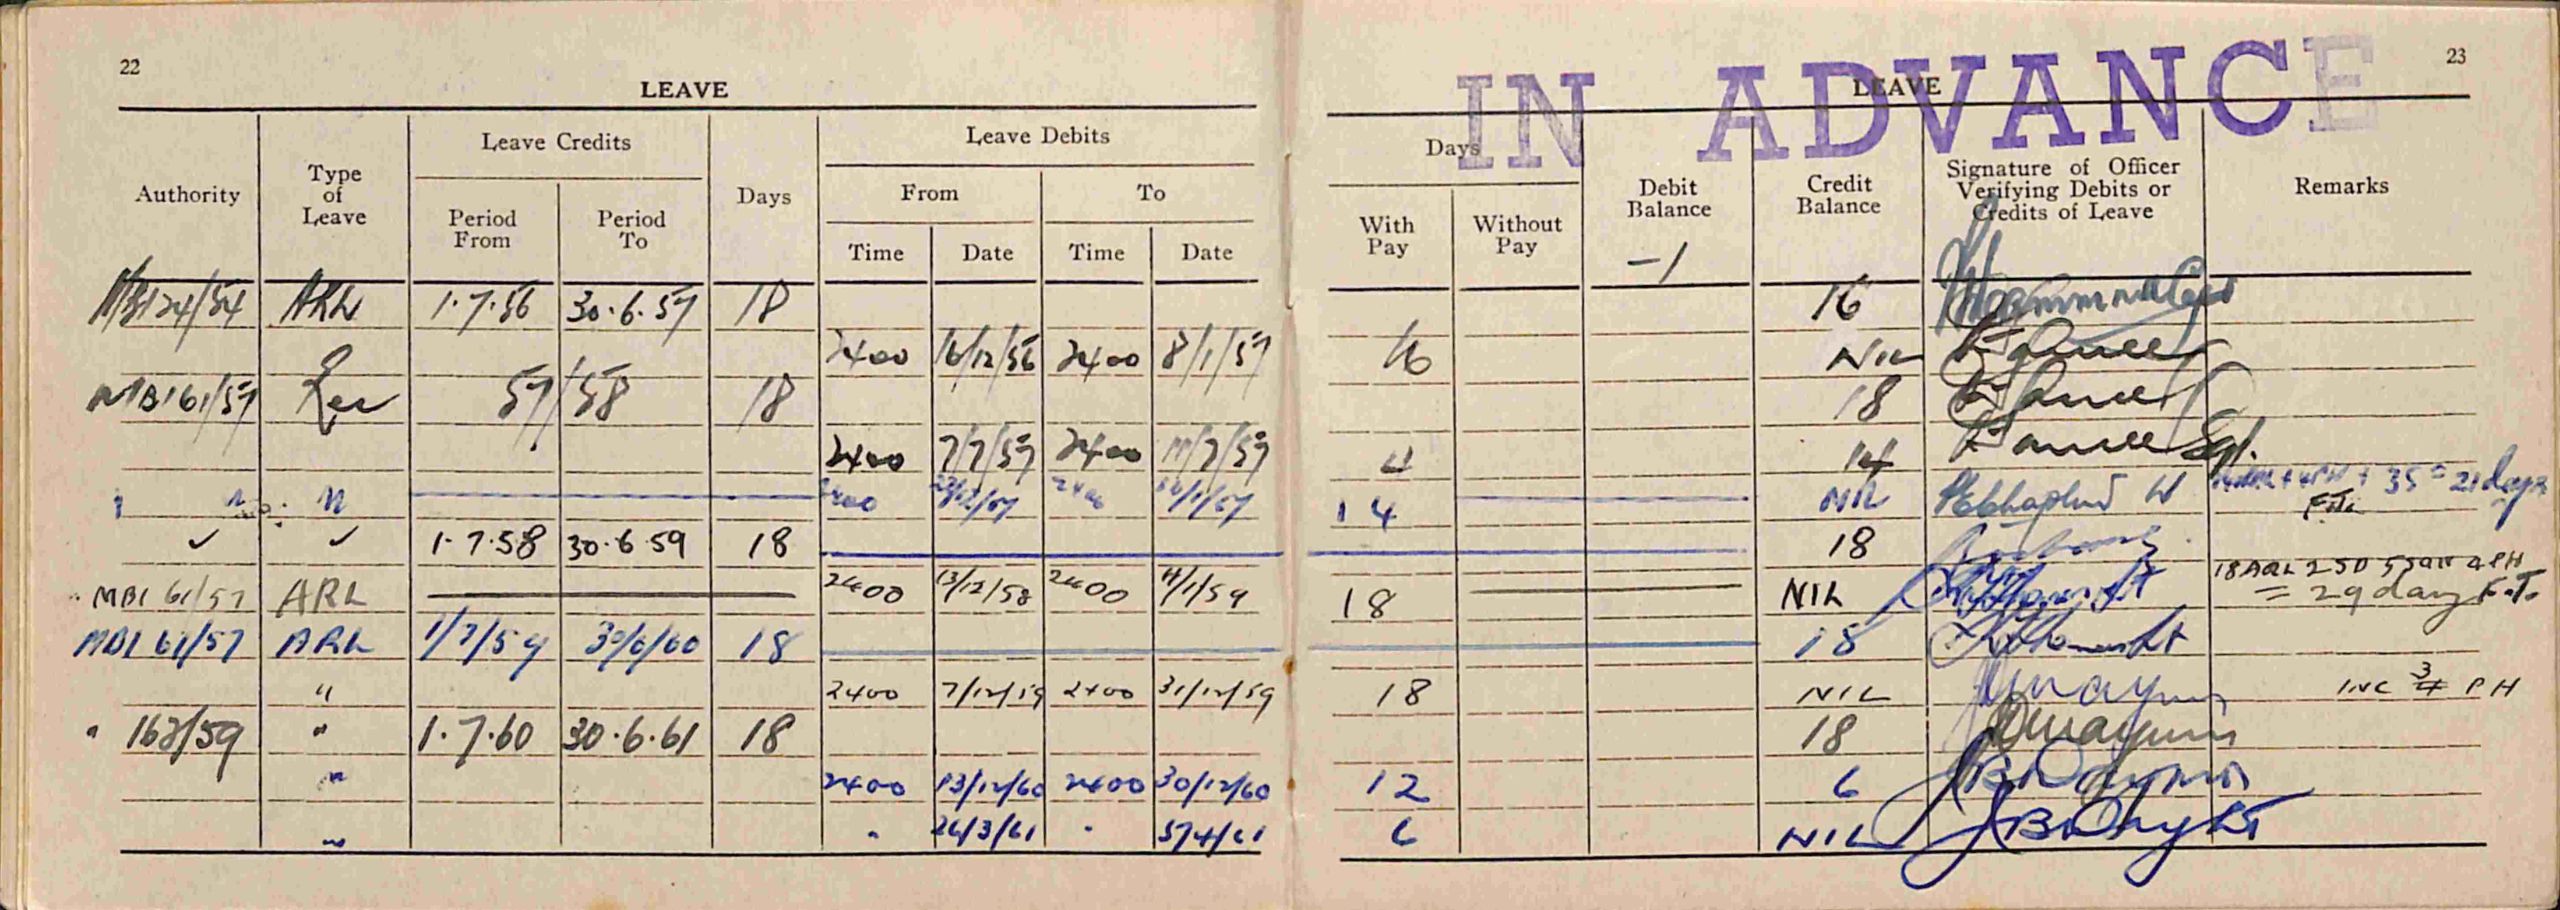 22
LEAVE
Authority
Type of Leave
Leave Credits
Period From
Period To
Days
Leave Debits
From
To
Time
Date
Time
Date
MBI 24/54 ARL 1.7.56 30.6.57 18
2400 16/12/56 2400 8/1/57
MBI 61/57 Rec 57/58 18
2400 7/7/57 2400 11/7/57
✓ ✓ 1.7.58 30.6.59 18
MBI 61/57 ARL 2400 13/12/58 2400 11/1/59
MBI 61/57 ARL 1/7/59 30/6/60 18
" 2400 7/12/59 2400 31/12/59
" 163/59 " 1.7.60 30.6.61 18
" 2400 13/12/60 2400 30/12/60
" " 26/3/61 " 5/4/61
IN ADVANCE
23
LEAVE
Days
With Pay
Without Pay
Debit Balance
Credit Balance
Signature of Officer Verifying Debits or Credits of Leave
Remarks
-1
16
16 NIL
18
4 14 Sgt.
14 NIL + 4PH + 35 = 21 days
18
18 NIL 18 ARL 2 SD 5 SAT 4 PH
= 29 days F.T.
18
18 NIL INC 3 4 PH
18
12 6
6 NIL